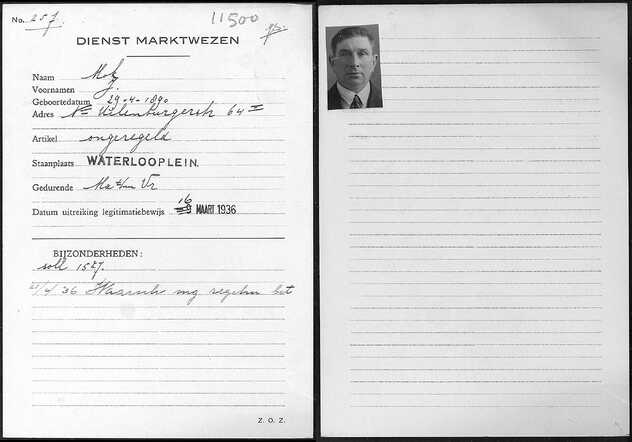 No. 257. 11500
DIENST MARKTWEZEN
Naam Mok
Voornamen J.
Geboortedatum 29-4-1890
Adres Nw Uilenburgerstr 64 II
Artikel ongeregeld
Staanplaats WATERLOOPLEIN.
Gedurende Ma t/m Vr
16
Datum uitreiking legitimatiebewijs 9 MAART 1936
BIJZONDERHEDEN:
soll 157.
/4/36 Waarsch regelm bet
Z. O. Z.